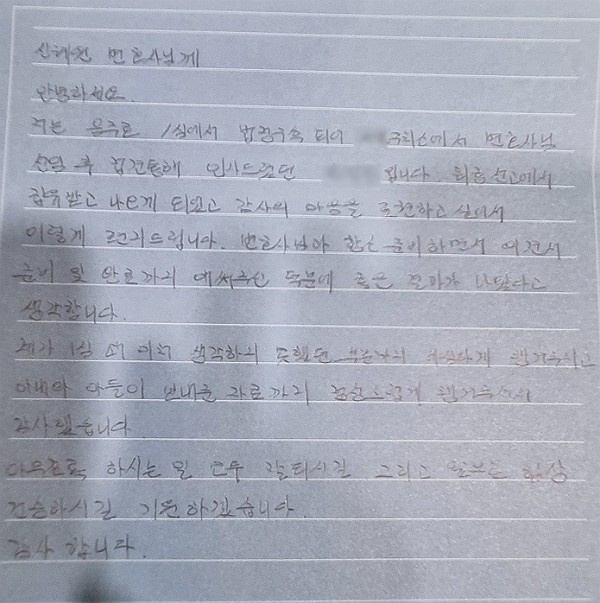 신혜원 변호사님께
안녕하세요.
저는 음주로 1심에서 법정구속 되어 구치소에서 변호사님
선임 후 접견통해 인사드렸던 입니다. 최종선고에서
집유받고 나오게 되었고 감사의 마음을 표현하고 싶어서
이렇게 편지드립니다. 변호사님이 항소 준비하면서 의견서
준비 및 변론까지 애써주신 덕분에 좋은 결과가 나왔다고
생각합니다.
제가 1심 때 미처 생각하지 못했던 부분까지 세심하게 챙겨주시고
아내와 아들이 보내온 자료까지 꼼꼼하게 챙겨주셔서
감사했습니다.
아무쪼록 하시는 일 모두 잘되시길 그리고 항상
건승하시길 기원하겠습니다.
감사합니다.